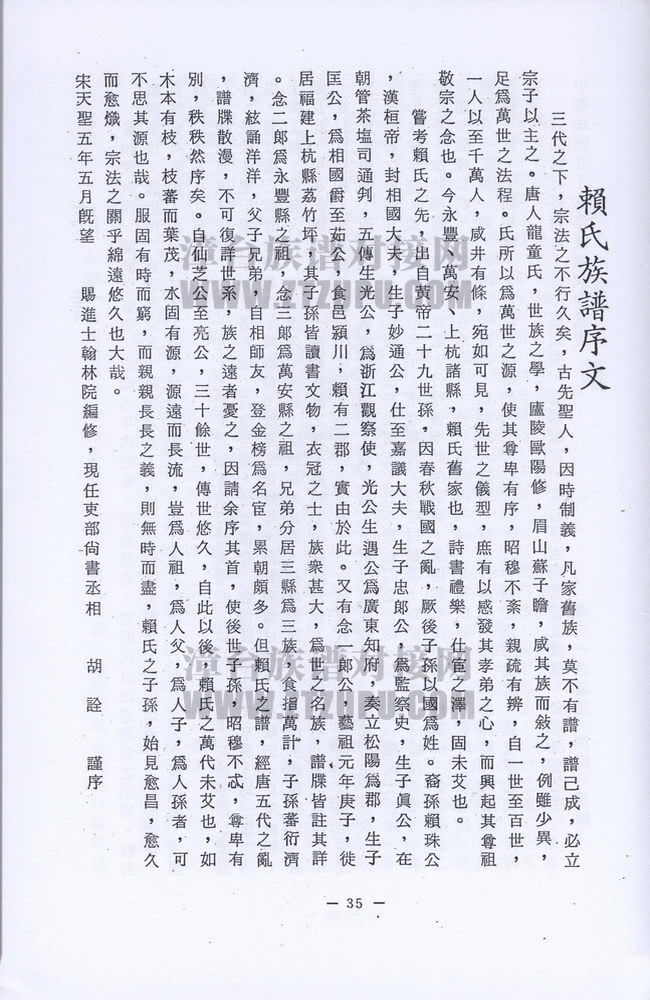 賴氏族譜序文
三代之下，宗法之不行久矣，古先聖人，因時制義，凡家舊族，莫不有譜，譜己成，必立
宗子以主之。唐人龍童氏，世族之學，廬陵歐陽修，眉山蘇子瞻，咸其族而敍之，例雖少異，
足爲萬世之法程。氏所以爲萬世之源，使其尊卑有序，昭穆不紊，親疏有辨，自一世至百世，
一人以至千萬人，咸井有條，宛如可見，先世之儀型，庶有以感發其孝弟之心，而興起其尊祖
敬宗之念也。今永豐、萬安、上杭諸縣，賴氏舊家也，詩書禮樂，仕宦之澤，固未艾也。
嘗考賴氏之先，出自黃帝二十九世孫，因春秋戰國之亂，厥後子孫以國爲姓。裔孫賴珠公
，漢桓帝，封相國大夫，生子妙通公，仕至嘉議大夫，生子忠郎公，爲監察史，生子眞公，在
朝管茶塩司通判，五傳生光公，爲浙江觀察使，光公生遇公爲廣東知府，奏立松陽爲郡，生子
匡公，爲相國爵至茹公，食邑潁川，賴有二郡，實由於此。又有念一郎公，藝祖元年庚子，徙
居福建上杭縣荔竹坪，其子孫皆讀書文物，衣冠之士，族衆甚大，爲世之名族，譜牒皆註其詳
。念二郎爲永豐縣之祖，念三郎爲萬安縣之祖，兄弟分居三縣爲三族，食指萬計，子孫蕃衍濟
濟，絃誦洋洋，父子兄弟，自相師友，登金榜爲名宦，累朝頗多。但賴氏之譜，經唐五代之亂
，譜牒散漫，不可復詳世系，族之遠者憂之，因請余序其首，使後世子孫，昭穆不忒，尊卑有
別，秩秩然序矣。自仙芝公至亮公，三十餘世，傳世悠久，自此以後，賴氏之萬代未艾也，如
木本有枝，枝蕃而葉茂，水固有源，源遠而長流，豈爲人祖，爲人父，爲人子，爲人孫者，可
不思其源也哉。服固有時而窮，而親親長長之義，則無時而盡，賴氏之子孫，始見愈昌，愈久
而愈熾，宗法之關乎綿遠悠久也大哉。
宋天聖五年五月旣望　賜進士翰林院編修，現任吏部尙書丞相　胡　詮　謹序
— 35 —
漳台族谱对接网
WWW.ZTZUPU.COM
漳台族谱对接网
WWW.ZTZUPU.COM